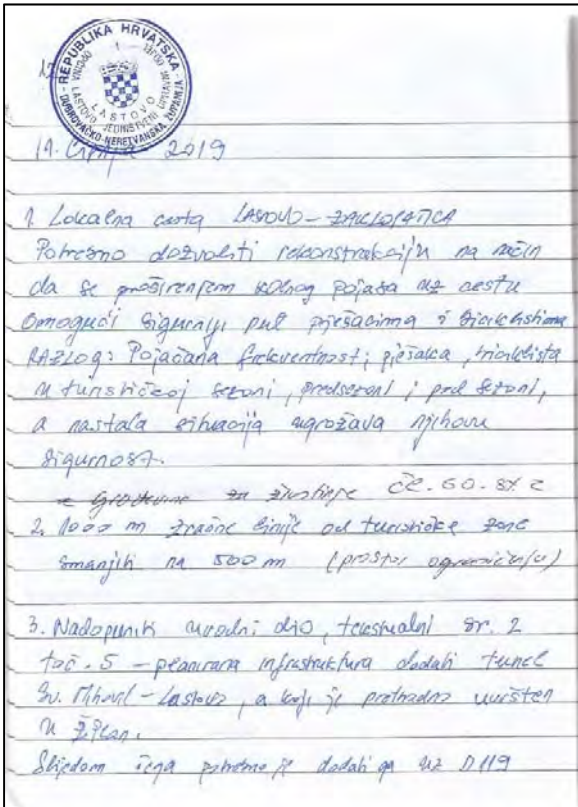 REPUBLIKA HRVATSKA
DUBROVAČKO-NERETVANSKA ŽUPANIJA
OPĆINA LASTOVO
JEDINSTVENI UPRAVNI
LASTOVO
2019
1. Lokalna cesta LASTOVO - ZAKLOPATICA
Potrebno dozvoliti rekonstrukciju na način
da se proširenjem kolnog pojasa uz cestu
omogući sigurniji put pješacima i biciklistima
RAZLOG: Pojačana frekventnost; pješaka, biciklista
u turističkoj sezoni, predsezoni i pod sezoni,
a nastala situacija ugrožava njihovu
sigurnost.
čl. 60. st. 2
2. 1000 m zračne linije od turističke zone
smanjiti na 500 m (prostor ograničenja)
3. Nadopuniti uvodni dio, tekstualni str. 2
toč. 5 - planirana infrastruktura dodati tunel
Sv. Mihovil - Lastovo, a koji je prethodno uvršten
u ŽPlan.
Slijedom čega potrebno je dodati ga uz D119